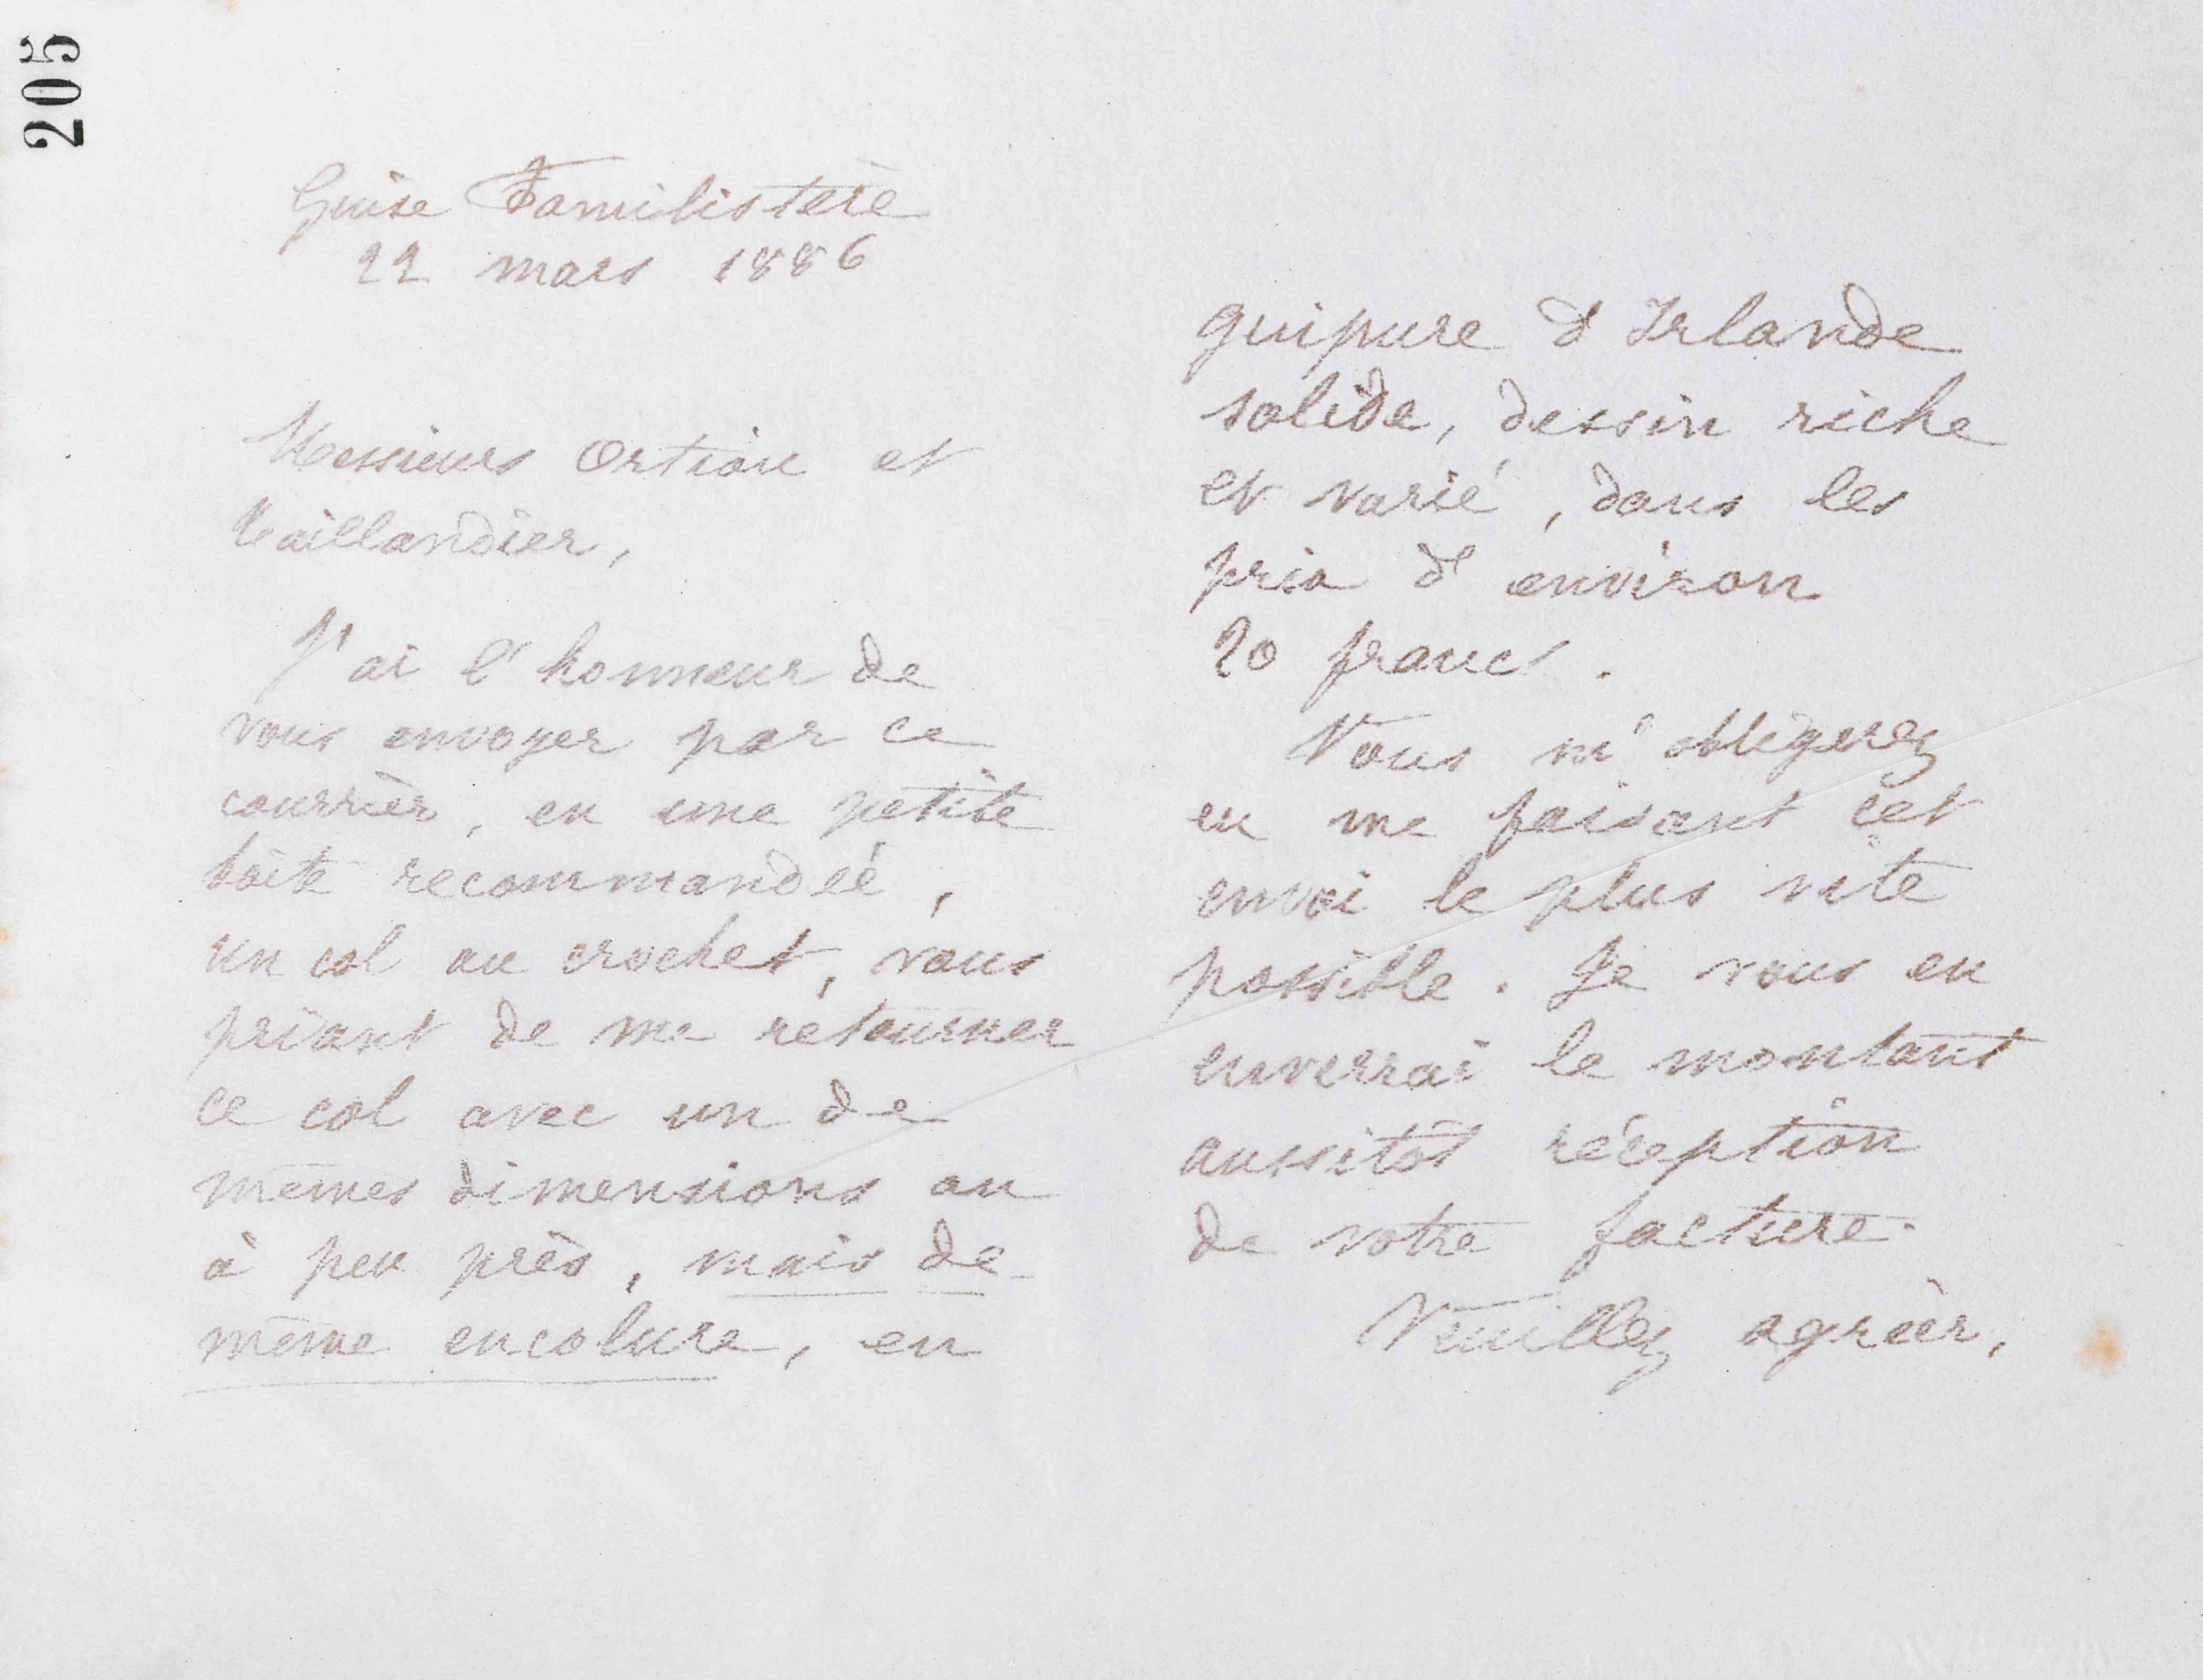 205
Guise Familistère
22 mars 1886
Messieurs Ortion et
Taillandier,
J'ai l'honneur de
vous envoyer par ce
courrier, en une petite
boîte recommandée,
un col au crochet, vous
priant de me retourner
ce col avec un de
mêmes dimensions ou
à peu près, mais de
même encolure, en
guipure d'Irlande
solide, dessin riche
et varié, dans les
prix d'environ
20 francs.
Vous m'obligerez
en me faisant cet
envoi le plus vite
possible. Je vous en
enverrai le montant
aussitôt réception
de votre facture.
Veuillez agréer,